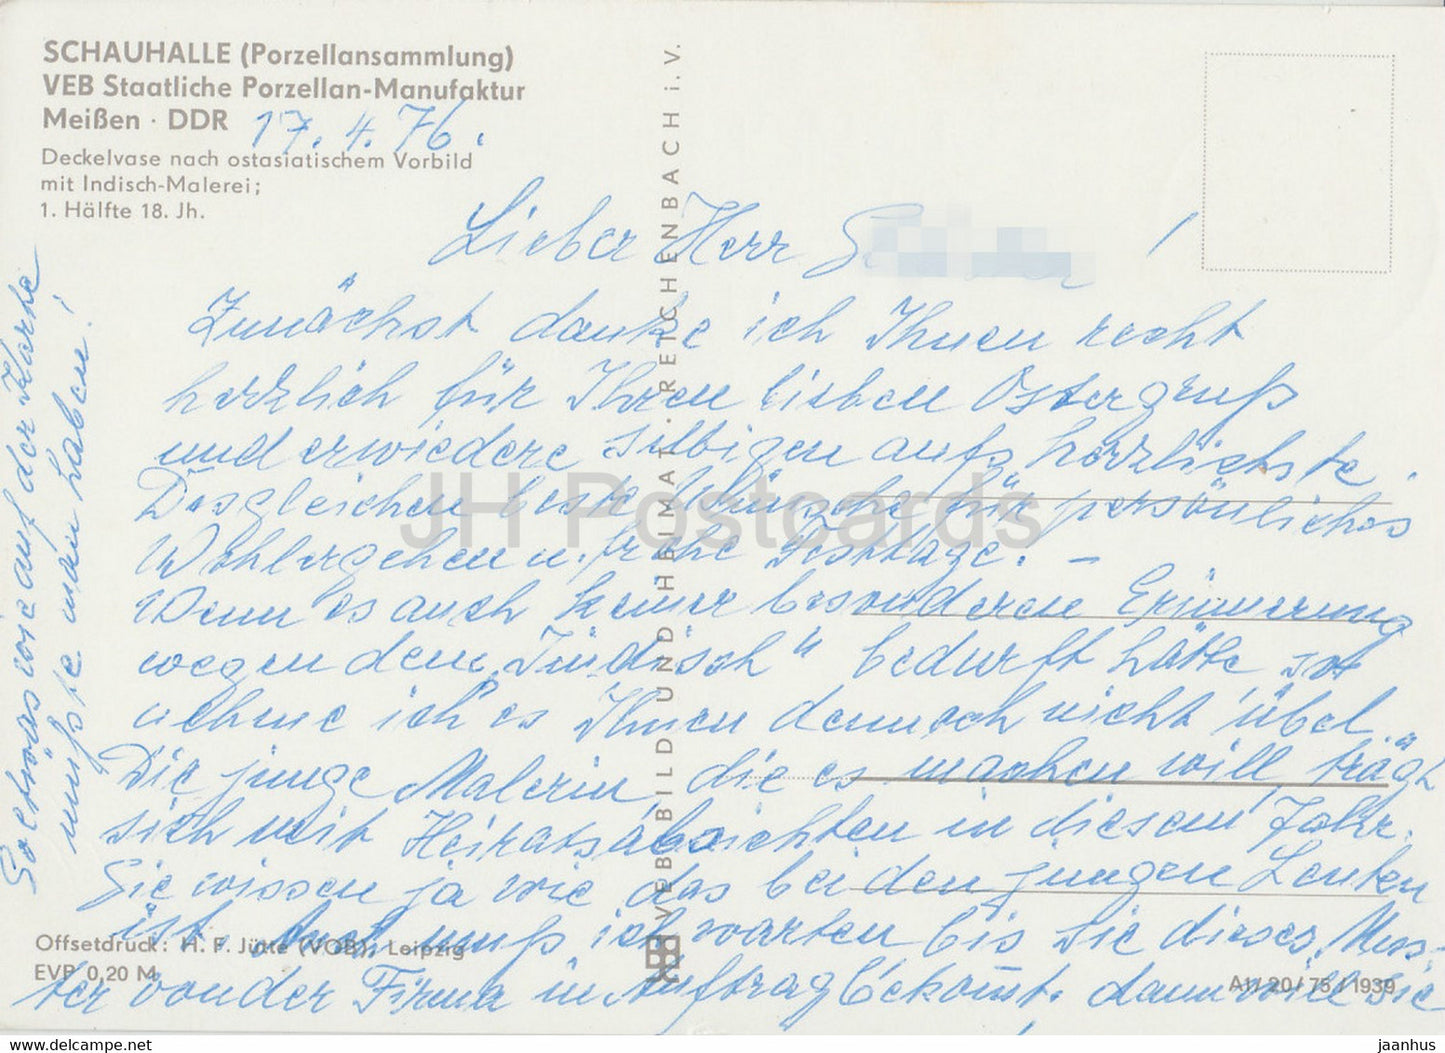 SCHAUHALLE (Porzellansammlung)
VEB Staatliche Porzellan-Manufaktur
Meißen · DDR
17.4.76.
Deckelvase nach ostasiatischem Vorbild
mit Indisch-Malerei;
1. Hälfte 18. Jh.
Lieber Herr !
Zunächst danke ich Ihnen recht
herzlich für Ihren lieben Ostergruß
und erwiedere selbigen aufs herzlichste.
Desgleichen beste Wünsche für persönliches
Wohlergehen u. frohe Festtage. –
Wenn es auch keiner besonderen Erinnerung
wegen dem „Indisch" bedurft hätte so
nehme ich es Ihnen dennoch nicht „übel."
Die junge Malerin, die es machen will, trägt
sich mit Heiratsabsichten in diesem Jahr.
Sie wissen ja wie das bei den jungen Leuten
ist. muß ich warten bis sie dieses Mus-
ter von der Firma in Auftrag bekommt, dann will sie
So etwas wie auf der Karte
müßte man haben!
VEB BILD UND HEIMAT · REICHENBACH i. V.
Offsetdruck: H. F. Jütte (VOB), Leipzig
EVP 0,20 M
A1/20/75/1939
JH Postcards
www.hippostcard.com
jaanhus